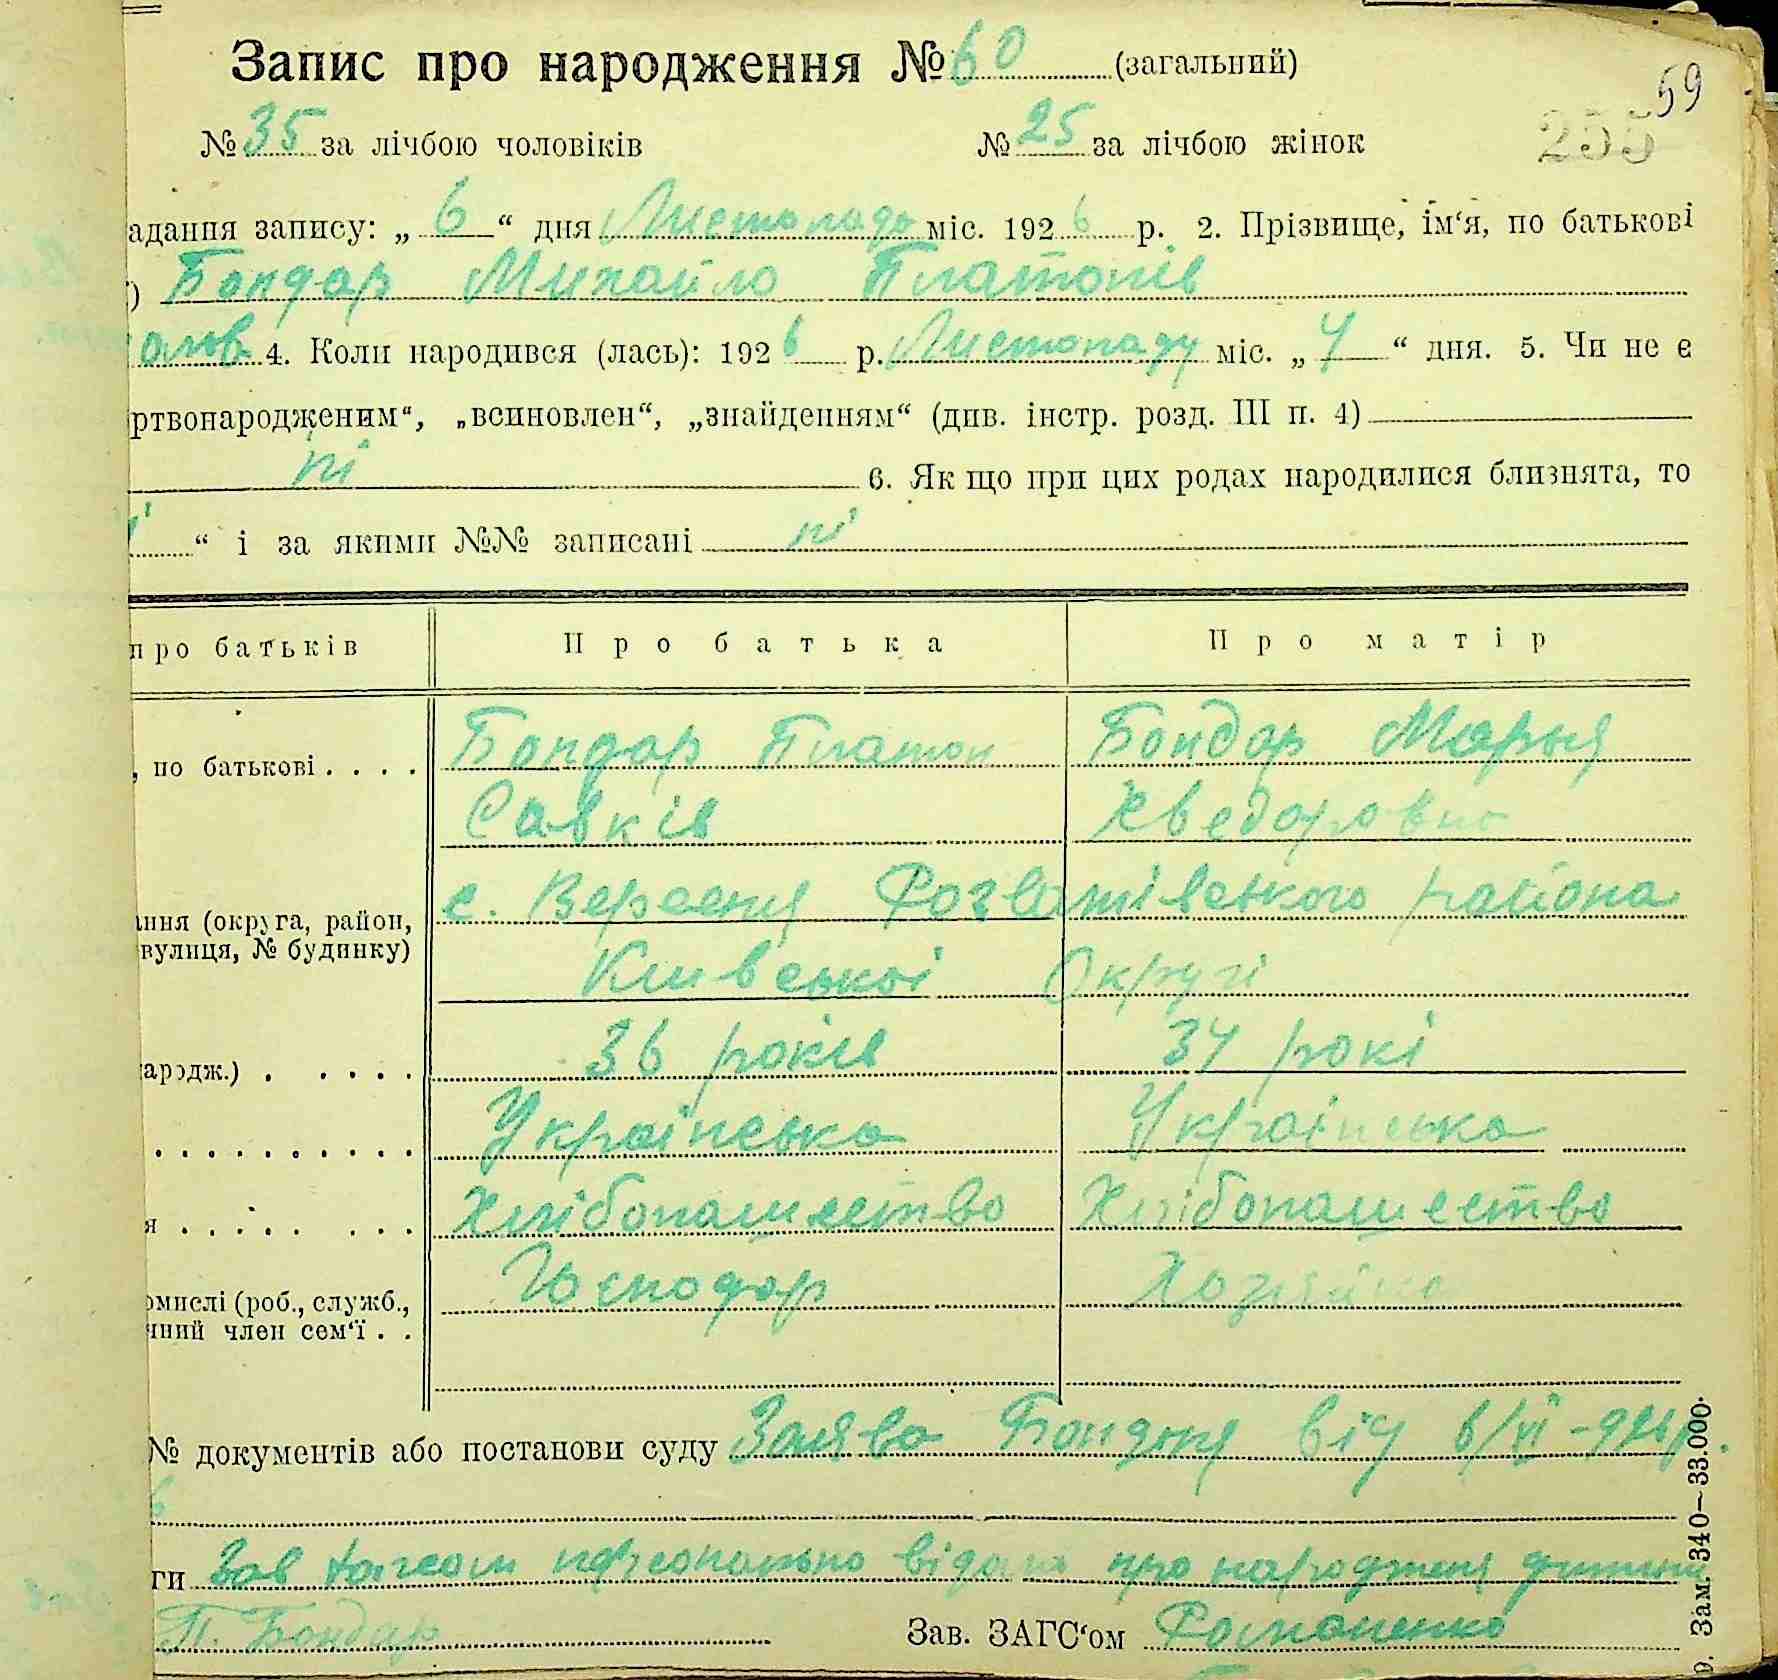 Запис про народження № 60 (загальний)
59
№ 35 за лічбою чоловіків № 25 за лічбою жінок
255
адання запису: „ 6 “ дня Листопада міс. 192 6 р. 2. Прізвище, ім‘я, по батькові
) Бондар Михайло Платонів
4. Коли народився (лась): 192 6 р. Листопаду міс. „ 4 “ дня. 5. Чи не є
ртвонародженим“, „всиновлен“, „знайденням“ (див. інстр. розд. III п. 4)
ні 6. Як що при цих родах народилися близнята, то
“ і за якими №№ записані ні
про батьків Про батька Про матір
, по батькові . . . . Бондар Платон Бондар Марья
Савків Хведоровна
ння (округа, район, с. Вересня Розваžівского района
вулиця, № будинку) Київської Округі
ародж.) . . . . . 36 років 34 рокі
Українська Українська
я Хлібопашество Хлібопашество
омислі (роб., служб., Господар Хозяйка
ний член сем‘ї . .
№ документів або постанови суду Заява Бондаря від 6/XI - 926 р.
ги Зав Загсом персонально відомо про народженя дитини
П. Бондар Зав. ЗАГС‘ом Романенко
9. Зам. 340–33.000.